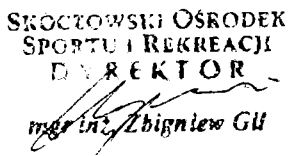 SKOCZOWSKI OŚRODEK
SPORTU I REKREACJI
DYREKTOR
mgr inż. Zbigniew Gil